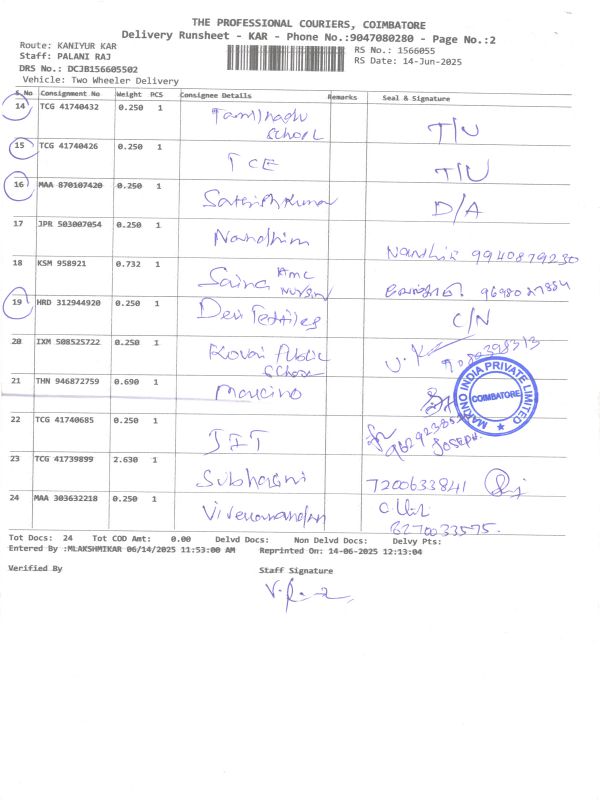 THE PROFESSIONAL COURIERS, COIMBATORE
Delivery Runsheet - KAR - Phone No.:9047080280 - Page No.:2
Route: KANIYUR KAR
Staff: PALANI RAJ
RS No.: 1566055
RS Date: 14-Jun-2025
DRS No.: DCJB156605502
Vehicle: Two Wheeler Delivery
S.No Consignment No Weight PCS Consignee Details Remarks Seal & Signature
14 TCG 41740432 0.250 1 Tamilnadu School T/U
15 TCG 41740426 0.250 1 TCE T/U
16 MAA 870107420 0.250 1 Sathishkumar D/A
17 JPR 503007054 0.250 1 Nandhini 9940879230
18 KSM 958921 0.732 1 Saina AMC
19 HRD 312944920 0.250 1 Devi Textiles C/N
20 IXM 508525722 0.250 1 Kovai Public School
21 THN 946872759 0.690 1
MARINO INDIA PRIVATE LIMITED
COIMBATORE
22 TCG 41740685 0.250 1 Joseph.
23 TCG 41739899 2.630 1 Subharani 7200633841
24 MAA 303632218 0.250 1 8270033575.
Tot Docs: 24 Tot COD Amt: 0.00 Delvd Docs: Non Delvd Docs: Delvy Pts:
Entered By :MLAKSHMIKAR 06/14/2025 11:53:00 AM Reprinted On: 14-06-2025 12:13:04
Verified By Staff Signature